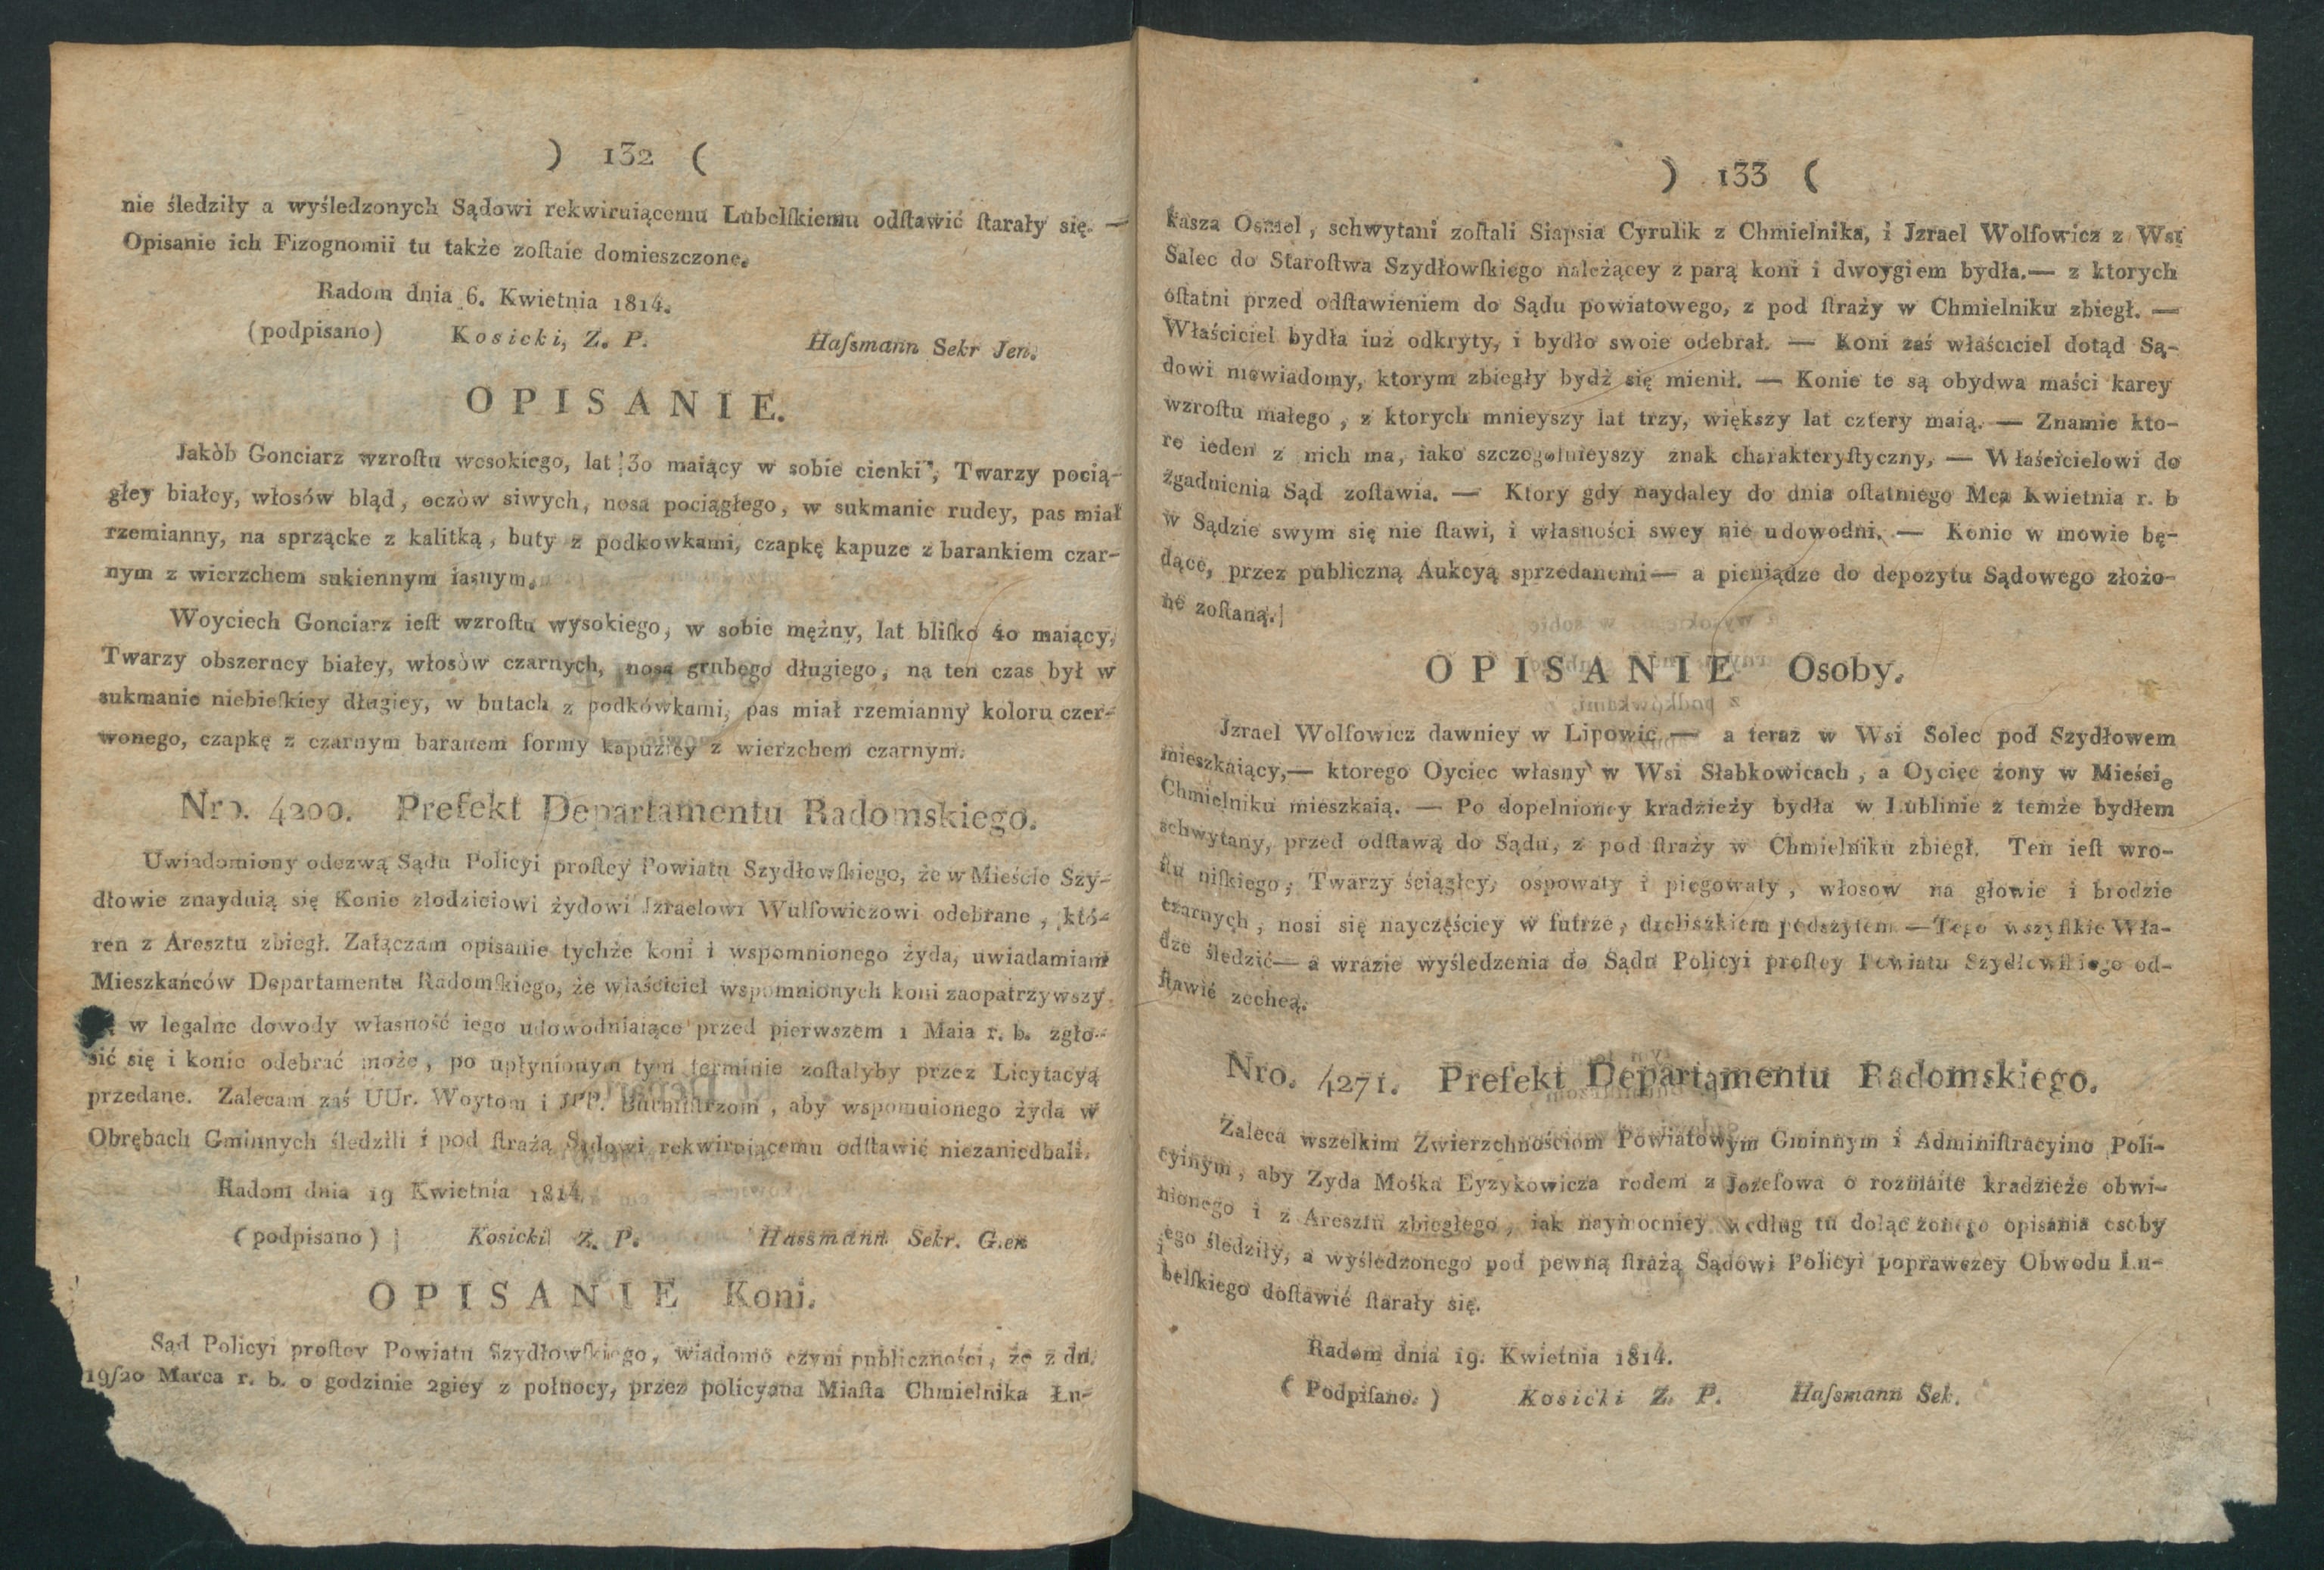 ) 132 (
nie śledziły a wyśledzonych Sądowi rekwiruiącemu Lubelſkiemu odſtawić ſtarały się. —
Opisanie ich Fizognomii tu także zoſtaie domieszczone.
Radom dnia 6. Kwietnia 1814.
(podpisano) Kosicki, Z. P. Haſsmann Sekr Jen.
OPISANIE.
Jakòb Gonciarz wzroſtu wesokiego, lat 30 maiący w sobie cienki, Twarzy pocią-
głey białey, włosów bląd, oczòw siwych, nosa pociągłego, w sukmanie rudey, pas miał
rzemianny, na sprzącke z kalitką, buty z podkowkami, czapkę kapuze z barankiem czar-
nym z wierzchem sukiennym iasnym.
Woyciech Gonciarz ieſt wzroſtu wysokiego, w sobie mężny, lat bliſko 40 maiący,
Twarzy obszerney białey, włosòw czarnych, nosa grubego długiego, na ten czas był w
sukmanie niebieſkiey długiey, w butach z podkówkami, pas miał rzemianny koloru czer-
wonego, czapkę z czarnym baranem formy kapuziey z wierzchem czarnym.
Nro. 4200. Prefekt Departamentu Radomskiego.
Uwiadomiony odezwą Sądu Policyi proſtey Powiatu Szydłowſkiego, że w Mieście Szy-
dłowie znayduią się Konie złodzieiowi żydowi Jzraelowi Wulfowiczowi odebrane, któ-
ren z Aresztu zbiegł. Załączam opisanie tychże koni i wspomnionego żyda, uwiadamiam
Mieszkańców Departamentu Radomſkiego, że właściciel wspomnionych koni zaopatrzywszy
w legalne dowody własność iego udowodniaiące przed pierwszem 1 Maia r. b. zgło-
sić się i konie odebrać może, po upłynionym tym terminie zoſtałyby przez Licytacyą
przedane. Zalecam zaś UUr. Woytom i JPP. Burmiſtrzom, aby wspomnionego żyda w
Obrębach Gminnych śledzili i pod ſtrażą Sądowi rekwiruiącemu odſtawić niezaniedbali.
Radom dnia 19 Kwietnia 1814.
(podpisano) Kosicki Z. P. Hassmann Sekr. G.en
OPISANIE Koni.
Sąd Policyi proſtey Powiatu Szydłowſkiego, wiadomo czyni publiczności, że z dn.
19/20 Marca r. b. o godzinie 2giey z połnocy, przez policyana Miaſta Chmielnika Łu-
) 133 (
kasza Osmel, schwytani zoſtali Siapsia Cyrulik z Chmielnika, i Jzrael Wolfowicz z Wsi
Salec do Staroſtwa Szydłowſkiego należącey z parą koni i dwoygiem bydła.— z ktorych
oſtatni przed odſtawieniem do Sądu powiatowego, z pod ſtraży w Chmielniku zbiegł. —
Właściciel bydła iuż odkryty, i bydło swoie odebrał. — Koni zaś właściciel dotąd Są-
dowi niewiadomy, ktorym zbiegły bydź się mienił. — Konie te są obydwa maści karey
wzroſtu małego, z ktorych mnieyszy lat trzy, większy lat cztery maią. — Znamie kto-
re ieden z nich ma, iako szczegolnieyszy znak charakteryſtyczny, — Właścicielowi do
zgadnienia Sąd zoſtawia. — Ktory gdy naydaley do dnia oſtatniego Mca Kwietnia r. b
w Sądzie swym się nie ſtawi, i własności swey nie udowodni. — Konie w mowie bę-
dące, przez publiczną Aukcyą sprzedanemi— a pieniądze do depozytu Sądowego złożo-
ne zoſtaną.
OPISANIE Osoby.
Jzrael Wolfowicz dawniey w Lipowie — a teraz w Wsi Solec pod Szydłowem
mieszkaiący,— ktorego Oyciec własny w Wsi Słabkowicach, a Oyciec żony w Mieście
Chmielniku mieszkaią. — Po dopelnioney kradzieży bydła w Lublinie z temże bydłem
schwytany, przed odſtawą do Sądu, z pod ſtraży w Chmielniku zbiegł. Ten ieſt wro-
ſtu niſkiego, Twarzy ściągłey, ospowaty i piegowaty, włosow na głowie i brodzie
czarnych, nosi się nayczęściey w futrze, dreliszkiem podszytem. — Tego wszyſtkie Wła-
dze śledzić— a wrazie wyśledzenia do Sądu Policyi proſtey Powiatu Szydłowſkiego od-
ſtawić zechcą.
Nro. 4271. Prefekt Departamentu Radomskiego.
Zaleca wszelkim Zwierzchnościom Powiatowym Gminnym i Adminiſtracyino Poli-
cyinym, aby Zyda Mośka Eyzykowicza rodem z Jozefowa o rozmaite kradzieże obwi-
nionego i z Aresztu zbiegłego, iak naymocniey według tu dołączonego opisania osoby
iego śledziły, a wyśledzonego pod pewną ſtrażą Sądowi Policyi poprawczey Obwodu Lu-
belſkiego doſtawić ſtarały się.
Radom dnia 19. Kwietnia 1814.
(Podpiſano.) Kosicki Z. P. Haſsmann Sek.